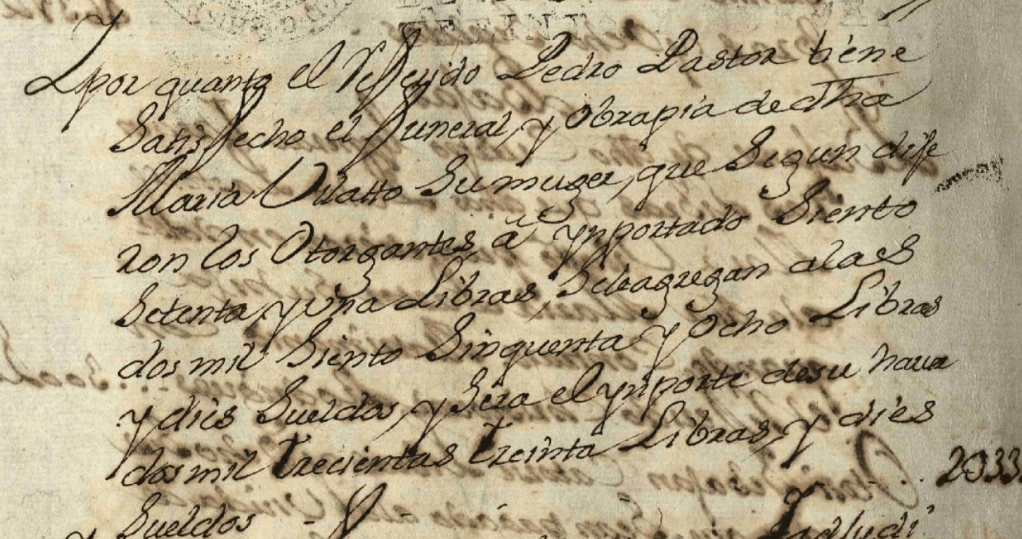 Y por quanto el Refferido Pedro Pastor tiene
Satisfecho el funeral, y Obrapia de dTha
Maria Vilatto Su muger, que Segun dife
ron los Otorgantes, á ynportado Siento
Setenta, y una Libras, Seleagregan alaes
dos mil Siento Sinquenta y Ocho Libras
y dies Sueldos, y Sera el ynporte desu haver
dos mil Trecientas Treinta Libras, y dies
Sueldos - 2033